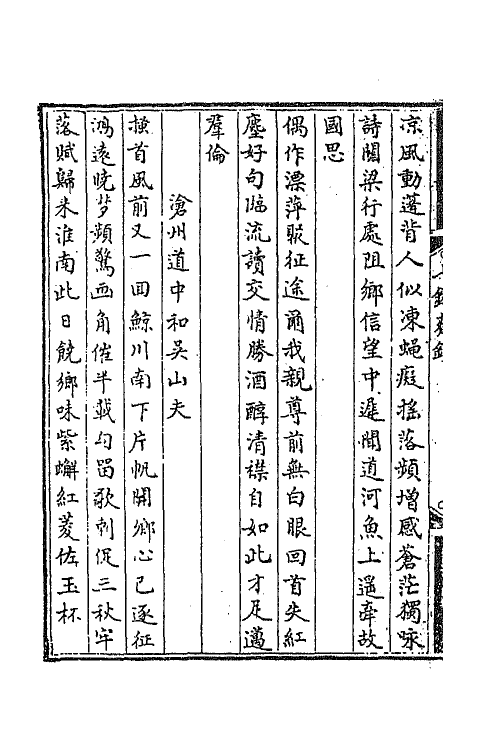 凉風動蓬背人似凍蝿癡搖落頻增感蒼茫獨咏
詩關梁行處阻鄉信望中遲聞道河魚上遥牽故
國思
偶作漂萍聚征途爾我親尊前無白眼回首失紅
塵好句臨流讀交情勝酒醇清襟自如此才足邁
羣倫
滄州道中和吴山夫
搔首風前又一回鯨川南下片帆開鄉心已逐征
鴻遠晚夢頻驚画角催半載勾留歌刺促三秋牢
落賦歸来淮南此日饒鄉味紫蠏紅菱佐玉杯